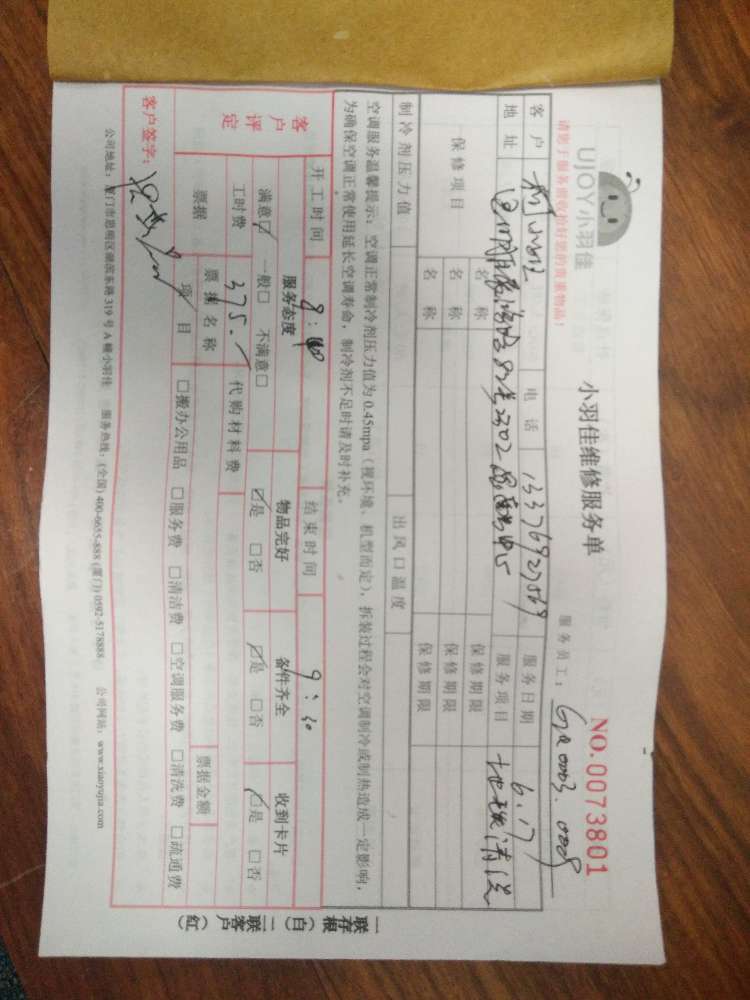 UJOY小羽佳
小羽佳维修服务单
NO.0073801
请您于服务前收拾好您的贵重物品!
服务员工:
客户 电话 13376927069 服务日期 6.17
地址 服务项目 地毯清洗
保修项目 名称 保修期限
名称 保修期限
名称 保修期限
制冷剂压力值 出风口温度
空调服务温馨提示:空调正常制冷剂压力值为 0.45mpa(视环境、机型而定),拆装过程会对空调制冷或制热造成一定影响,
为确保空调正常使用延长空调寿命,制冷剂不足时请及时补充。
开工时间 结束时间 9:30
客户评定 服务态度 物品完好 备件齐全 收到卡片
满意☑ 一般□ 不满意□ ☑是 □否 ☑是 □否 ☑是 □否
工时费 375.- 代购材料费
票据 票据名称 票据金额
项目 □搬办公用品 □服务费 □清洁费 □空调服务费 □清洗费 □疏通费
客户签字:
公司地址:厦门市思明区湖滨东路 319 号 A 幢小羽佳 服务热线:(全国) 400-6655-888 (厦门) 0592-5178888 公司网站:www.xiaoyujia.com
一联存根(白) 二联客户(红)